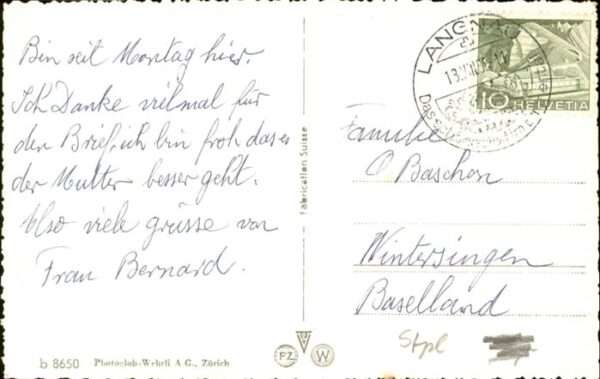 Bin seit Montag hier.
Ich Danke vielmal für
den Brief, ich bin froh das es
der Mutter besser geht.
Also viele grüsse von
Frau Bernard.
b 8650 Photoglob-Wehrli A G., Zürich
Fabrication Suisse
PZ W
LANGNAU
10 HELVETIA
Familie
O Baschon
Wintersingen
Baselland
Stpl